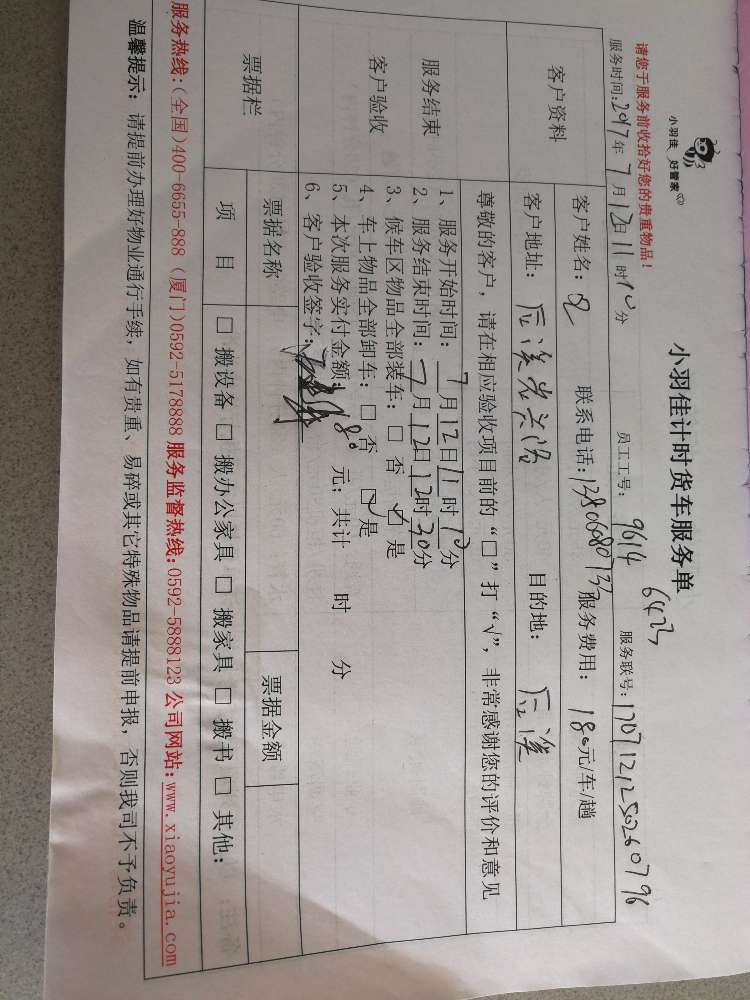 小羽佳 好管家
小羽佳计时货车服务单
请您于服务前收拾好您的贵重物品！
9614 6423
服务时间：2017年 7月12日11时10分 员工工号： 服务联号：170712125026 0796
客户资料
客户姓名： 联系电话：13806080733 服务费用：180元/车/趟
客户地址：后溪岩兴路 目的地：后溪
服务结束
客户验收
尊敬的客户，请在相应验收项目前的“□”打“√”，非常感谢您的评价和意见
1、服务开始时间：7月12日11时10分
2、服务结束时间：7月12日12时30分
3、候车区物品全部装车：□ 否 ☑ 是
4、车上物品全部卸车：□ 否 ☑ 是
5、本次服务实付金额：180元；共计 时 分
6、客户验收签字：
票据栏
票据名称 票据金额
项 目 □ 搬设备 □ 搬办公家具 □ 搬家具 □ 搬书 □ 其他：
服务热线：（全国）400-6655-888（厦门）0592-5178888 服务监督热线：0592-5888123 公司网站：www.xiaoyujia.com
温馨提示：请提前办理好物业通行手续，如有贵重、易碎或其它特殊物品请提前申报，否则我司不予负责。